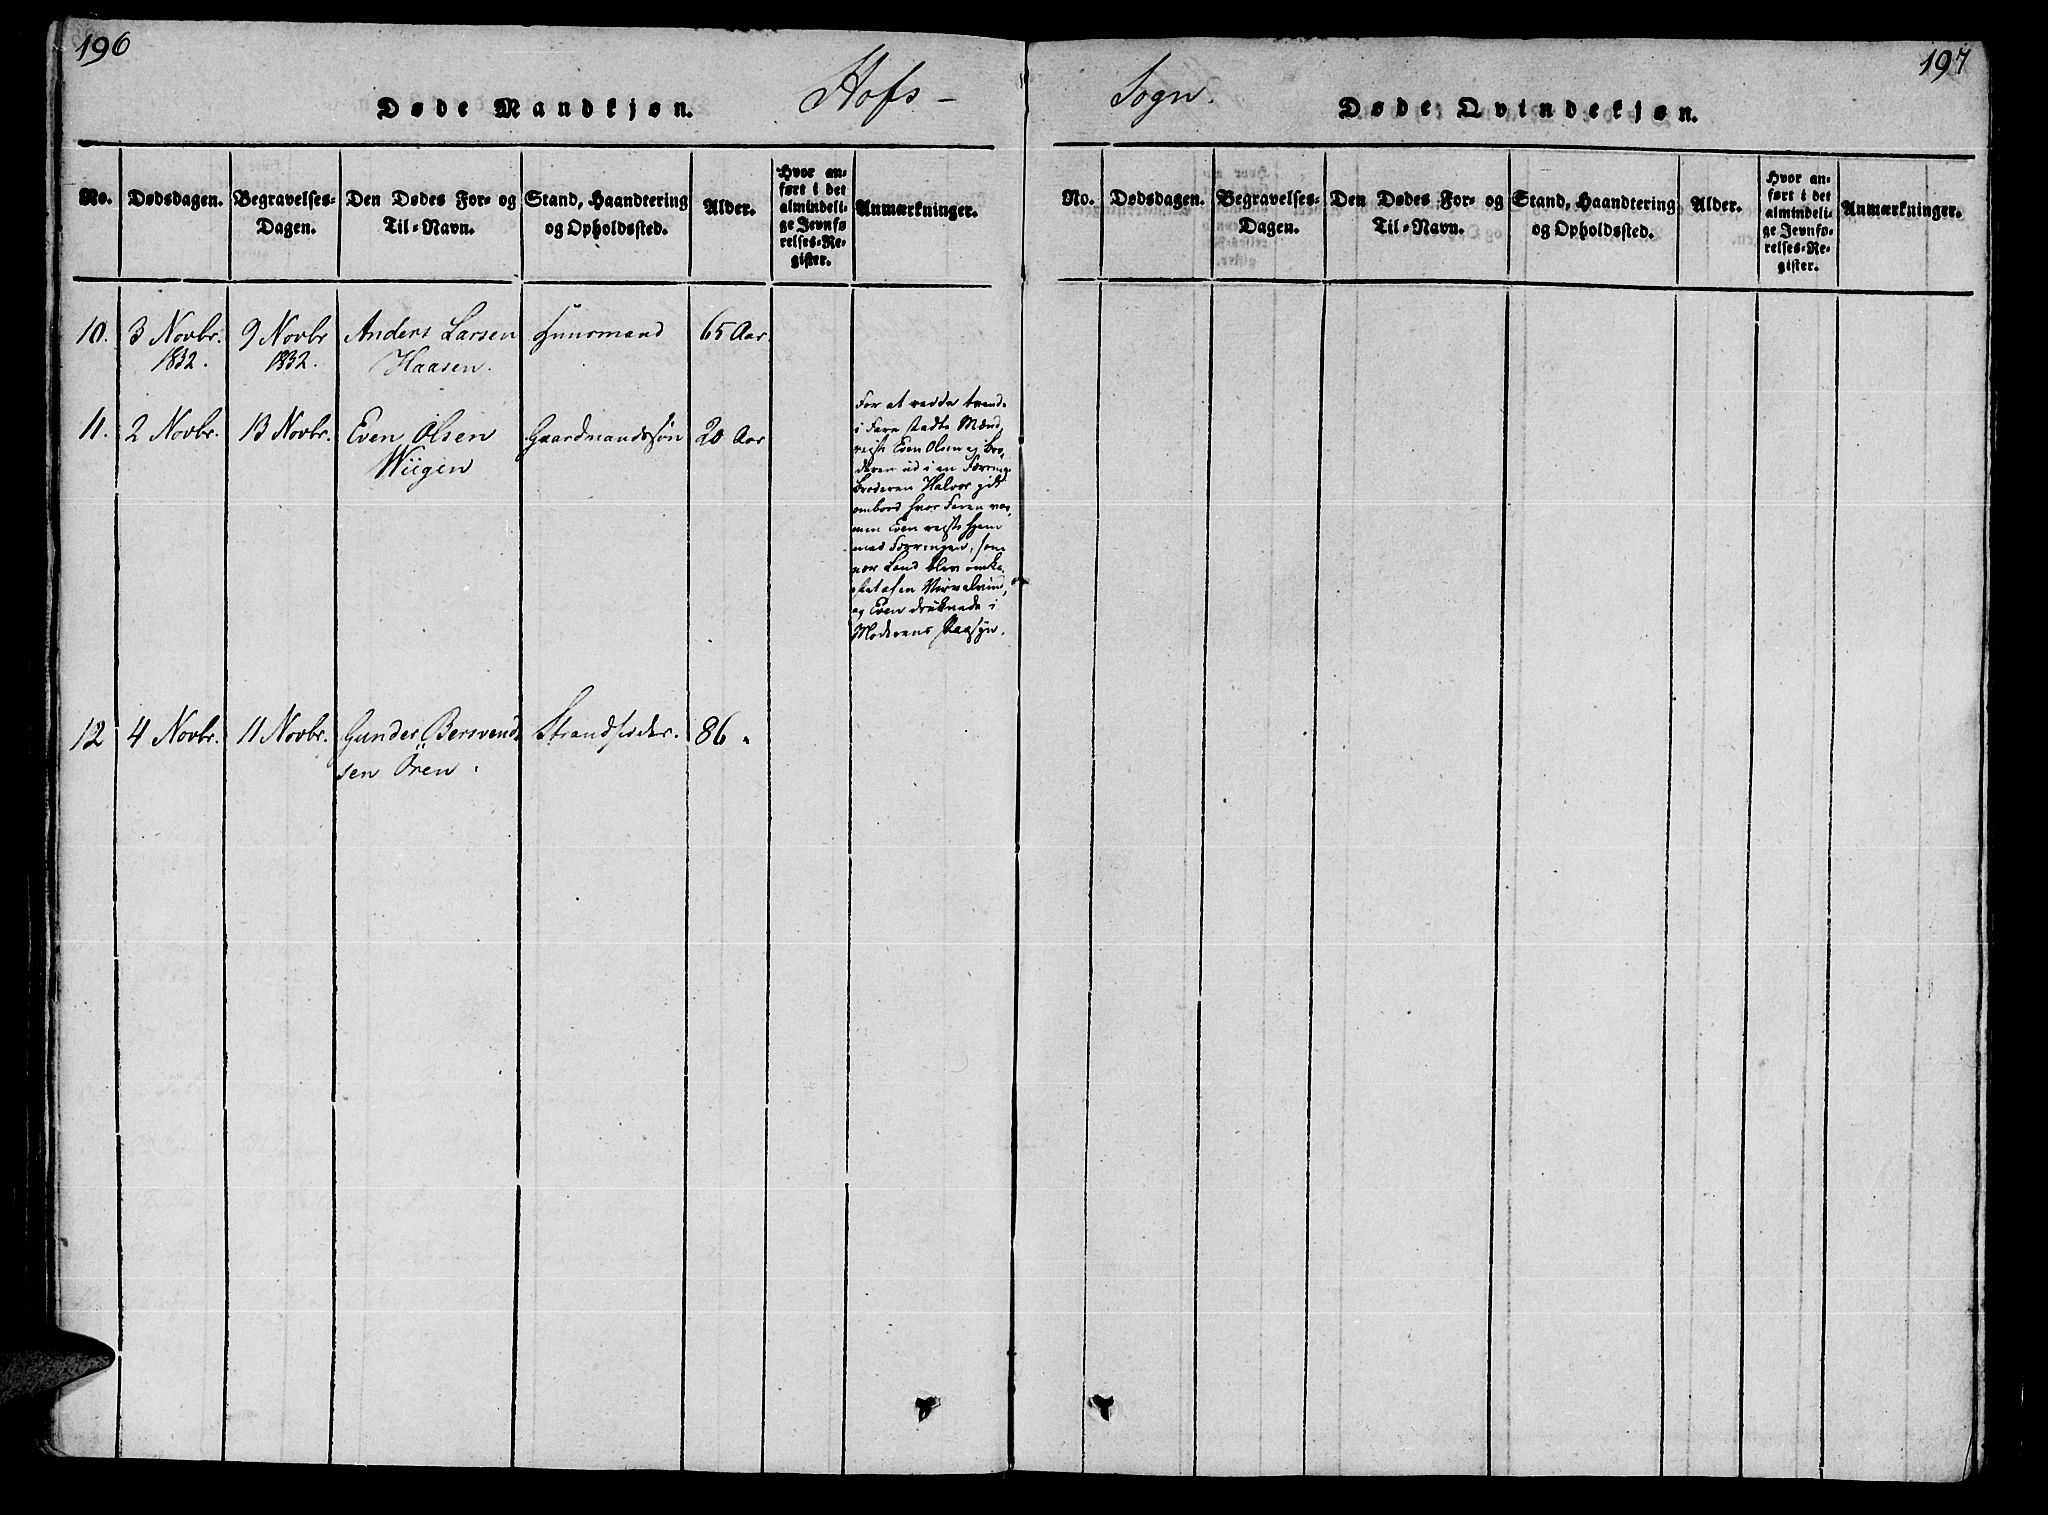 196
Døde Mandkjøn.
Hofs -
No.
Dødsdagen.
Begravelses-
Dagen.
Den Dødes For- og
Til-Navn.
Stand, Haandtering
og Opholdssted.
Alder.
Hvor an-
ført i det
almindeli-
ge Jevnfø-
relses-Re-
gister.
Anmærkninger.
10. 3 Novbr. 9 Novbr Anders Larsen Huusmand 65 Aar.
1832. 1832. Haasen.
11. 2 Novbr. 13 Novbr. Even Olsen Gaardmandssøn 20 Aar
Wiigen
For at redde trende
i Fare stadte Mænd
reiste Even Olsen og Bro-
deren ud i en Færing.
Broderen Halvor gik
ombord hvor Faren var,
men Even reiste hjem
med Færingen, som
nær Land blev omka-
stet af en Hvirvelvind,
og Even druknede i
Moderens Paasyn.
12 4 Novbr. 11 Novbr. Gunder Bersvend- Strandsidder. 86 "
sen Ören.
197
Sogn.
Døde Qvindekjøn.
No.
Dødsdagen.
Begravelses-
Dagen.
Den Dødes For- og
Til-Navn.
Stand, Haandtering
og Opholdssted.
Alder.
Hvor an-
ført i det
almindeli-
ge Jevnfø-
relses-Re-
gister.
Anmærkninger.